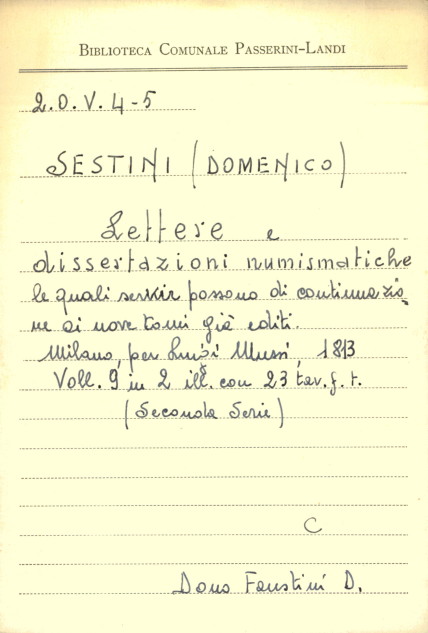 BIBLIOTECA COMUNALE PASSERINI-LANDI
2.O.V.4-5
SESTINI (DOMENICO)
Lettere e
dissertazioni numismatiche
le quali servir possono di continuazio_
ne ai nove tomi già editi.
Milano, per Luigi Mussi, 1813
Voll. 9 in 2 ill. con 23 tav. f. t.
(Seconda Serie)
C
Dono Faustini D.